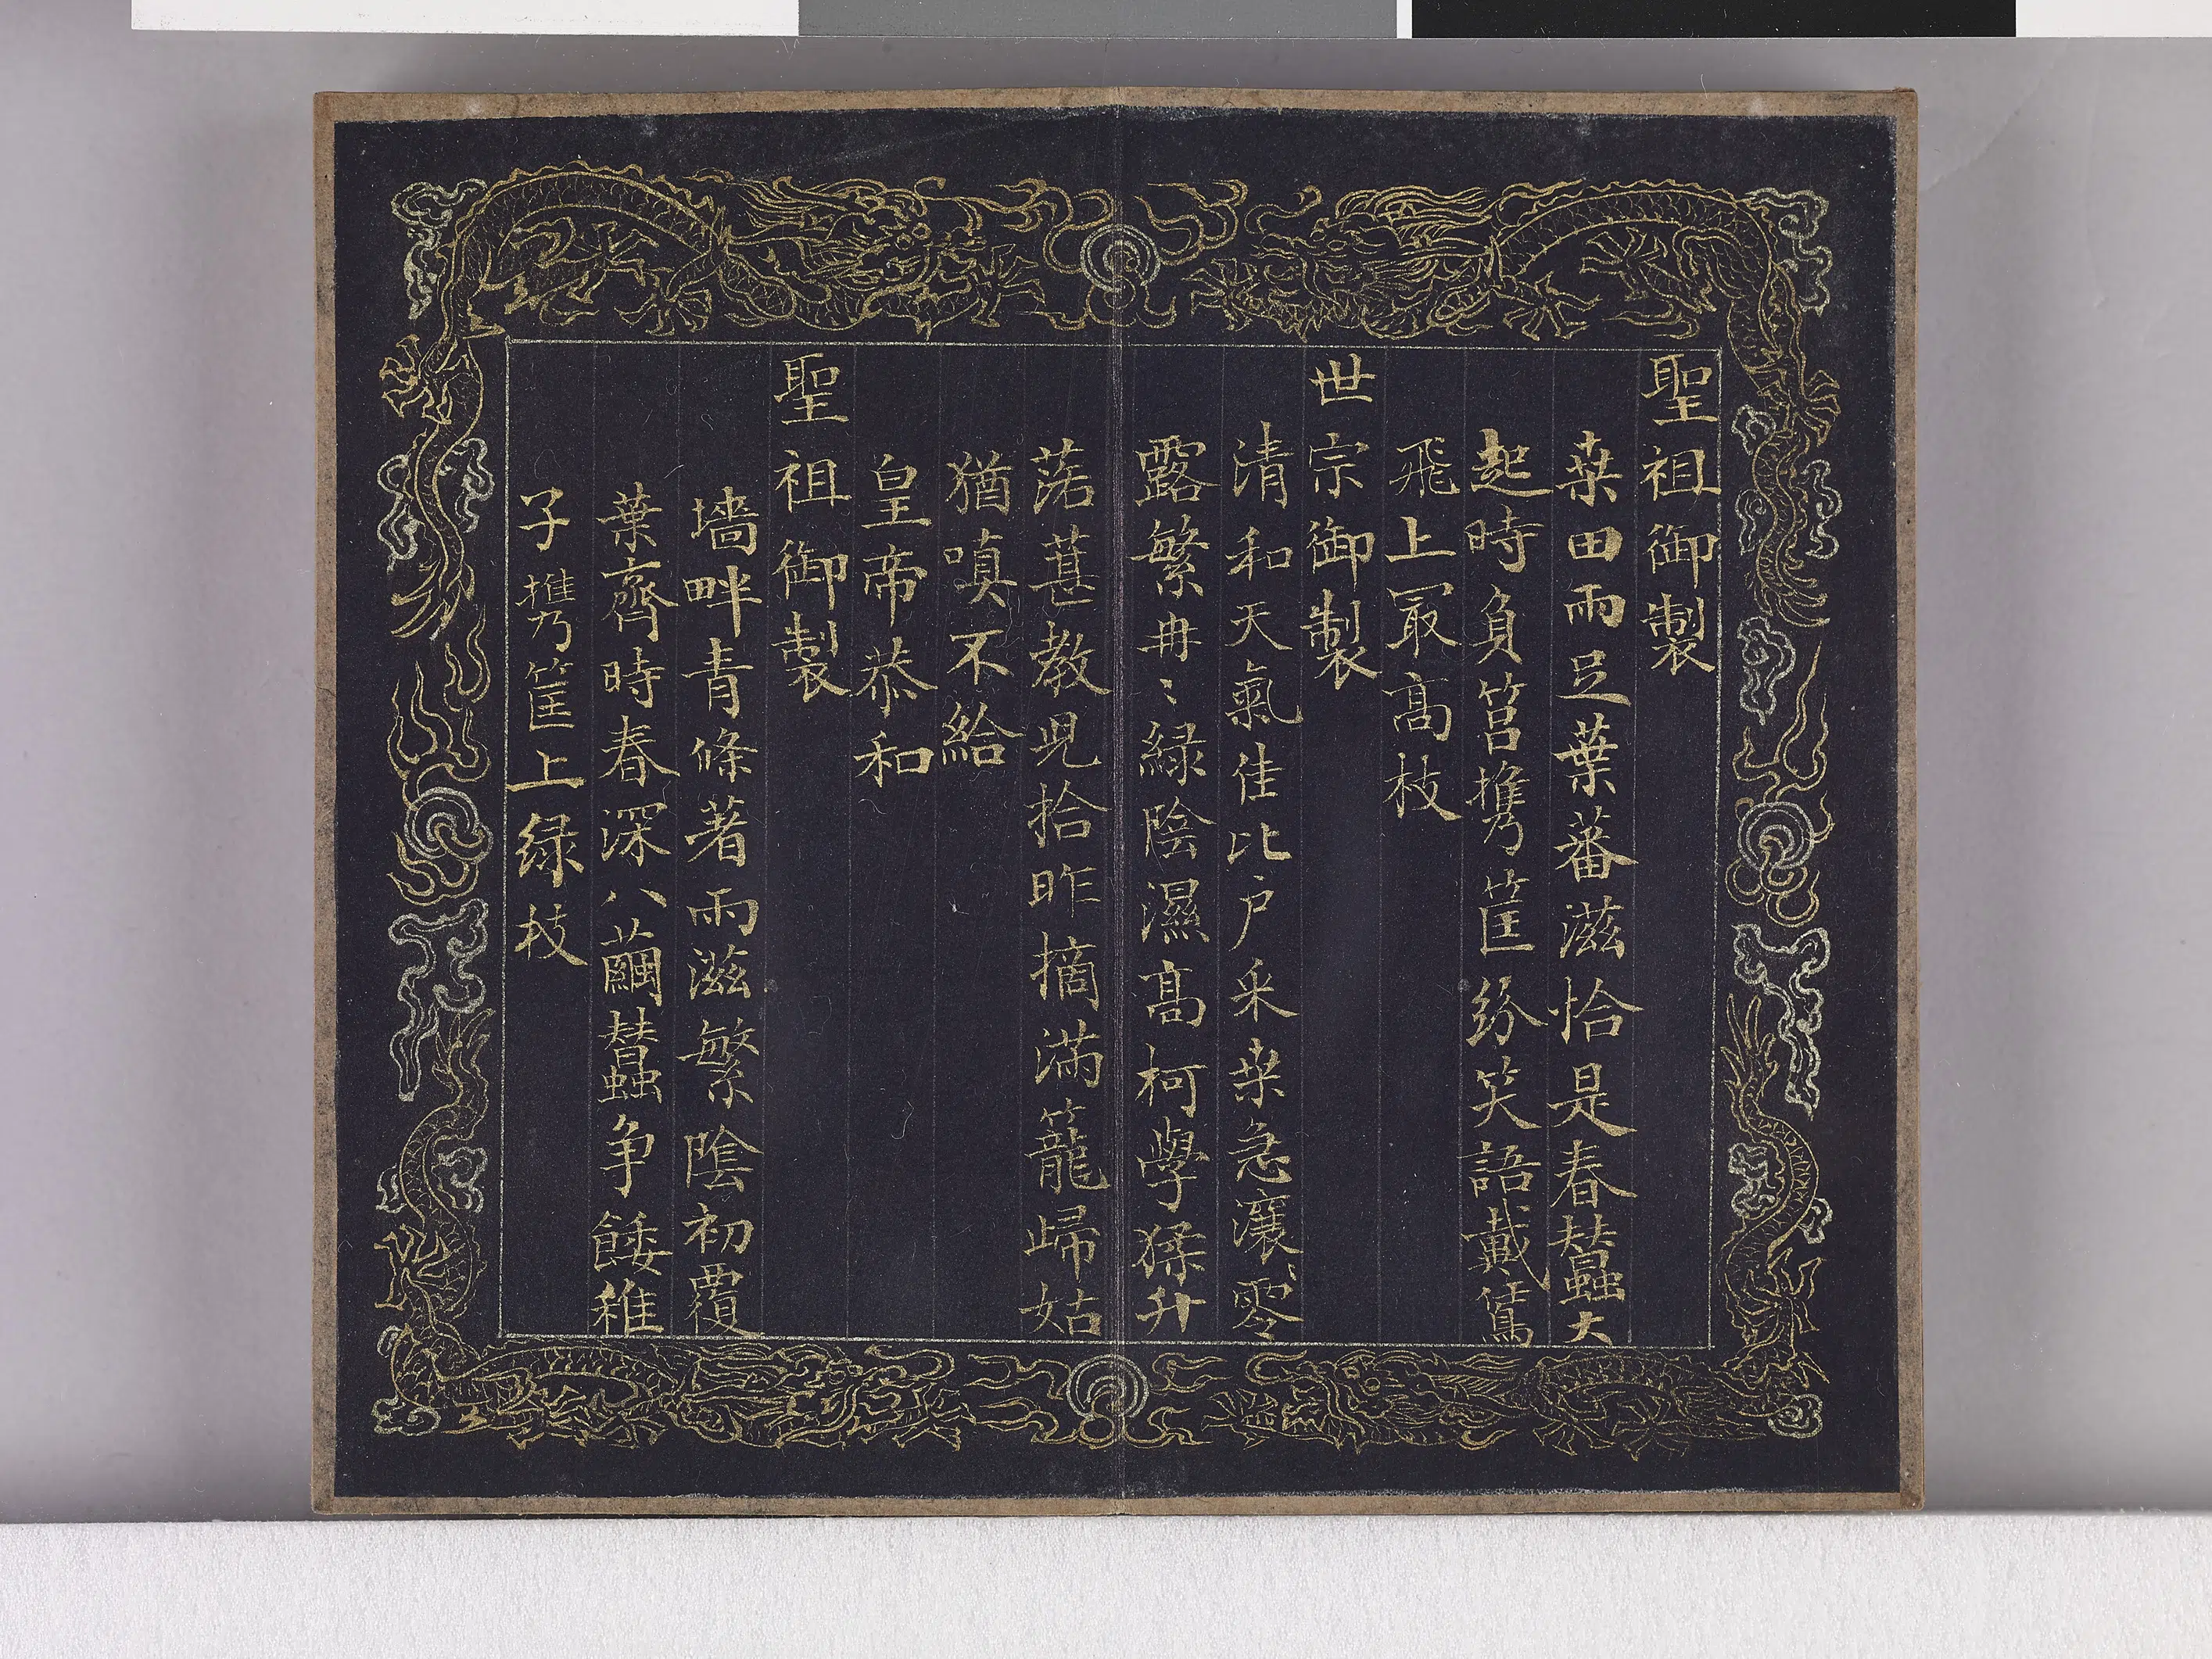 聖祖御製
桒田雨足葉蕃滋恰是春蠶大
起時負筥擕筐紛笑語戴鵀
飛上冣高枝
世宗御製
清和天氣佳比户采桒急瀼瀼零
露繁冉冉綠陰濕高柯學猱升
落葚教兒拾昨摘滿籠歸姑
猶嗔不給
皇帝恭和
聖祖御製
墻畔青條著雨滋繁陰初覆
葉齊時春深八繭蠶争餧稚
子擕筐上緑枝